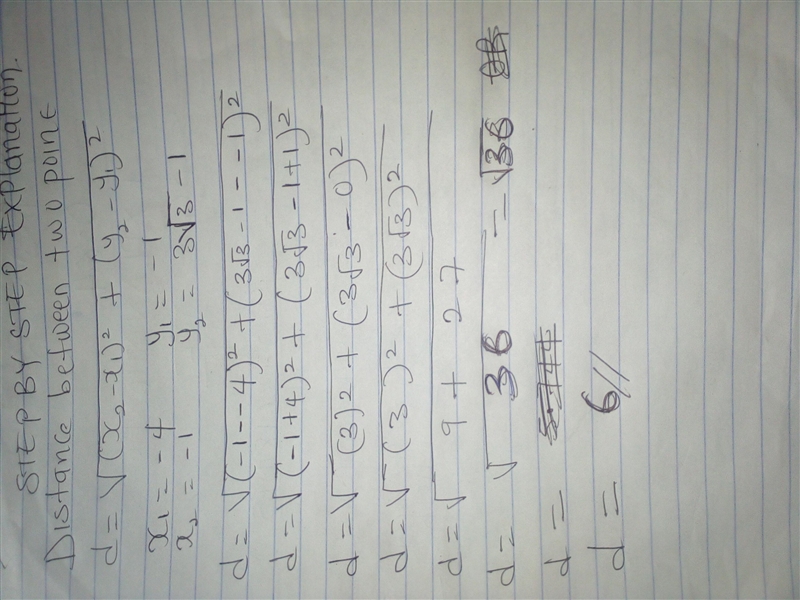 STEP BY STEP Explanation.
Distance between two point
d = √(x₂-x₁)² + (y₂-y₁)²
x₁ = -4 y₁ = -1
x₂ = -1 y₂ = 3√3 - 1
d = √(-1--4)² + (3√3-1--1)²
d = √(-1+4)² + (3√3-1+1)²
d = √(3)² + (3√3-0)²
d = √(3)² + (3√3)²
d = √9 + 27
d = √36 = √36
d =
d = 6//